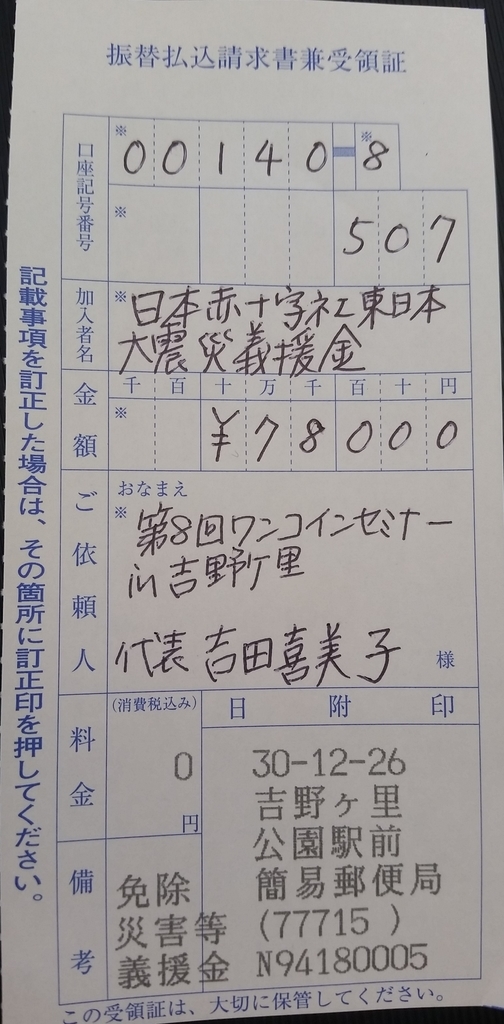 振替払込請求書兼受領証
口座記号番号
※ 00140-※8
※ 507
加入者名
※日本赤十字社東日本
大震災義援金
金額
千百十万千百十円
※ ¥78000
ご依頼人
おなまえ
※ 第8回ワンコインセミナー
in 吉野ケ里
代表 吉田喜美子 様
料金
(消費税込み)
0
円
日附印
30-12-26
吉野ヶ里
公園駅前
簡易郵便局
(77715 )
N94180005
備考
免除
災害等
義援金
この受領証は、大切に保管してください。
記載事項を訂正した場合は、その箇所に訂正印を押してください。